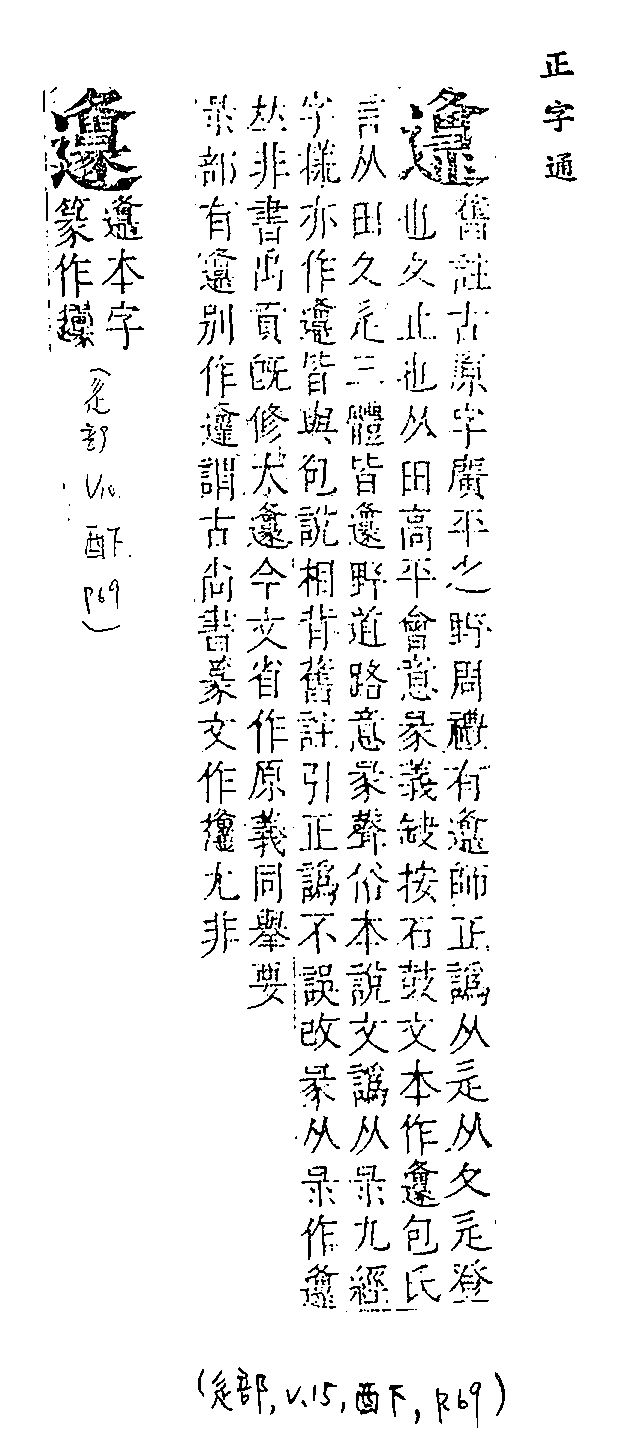 正字通
邍
舊註古原字廣平之野周禮有邍師正譌从辵从夂辵登
也夂止也从田高平會意彖義缺按石鼓文本作邍包氏
言从田夂辵三體皆邍野道路意彖聲俗本說文譌从彔九經
字樣亦作邍皆與包說相背舊註引正譌不誤改彖从彔作邍
𠀤非書禹貢旣修太邍今文省作原義同舉要
彔部有邍別作邍謂古尚書篆文作尤非
邍本字
篆作
(辵部 V.10. 酉下. P.69)
(辵部, V.15, 酉下, P.69)